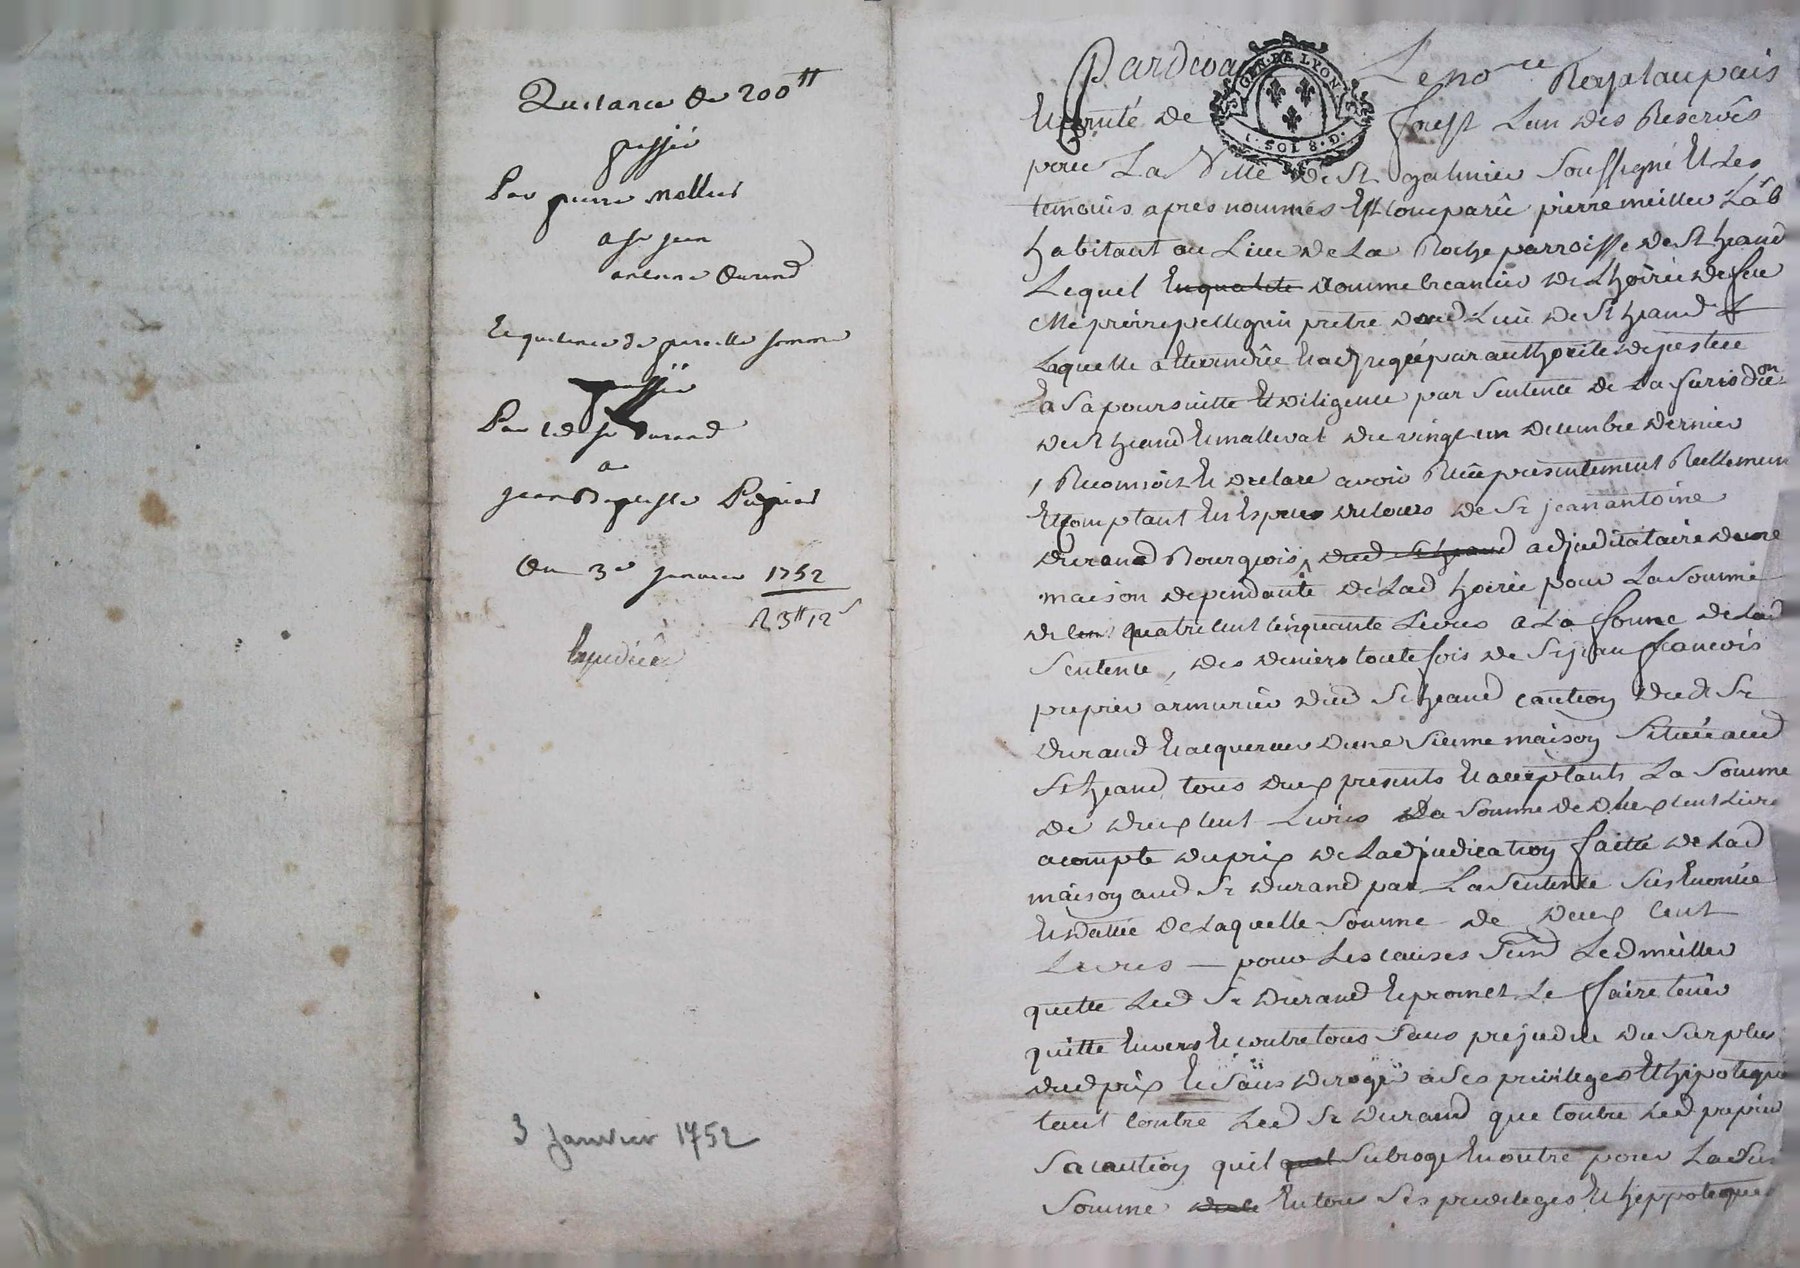 Quittance de 200tt
passée
Par pierre mellier
a sr jean
antoine durand
Et quittance de pareille somme
passée
Par led sr durand
a
jean Baptiste
Du 3e janvier 1752
3tt 12s
Expediée
3 Janvier 1752
Pardevant Le nore Royal au païs
Et comté de forest L'un des Reservés
pour La Ville de St galmier soussigné Et Les
temoins apres nommés Est comparû pierre meiller Lab
habitant au Lieu de La Roche parroisse de St heand
Lequel En qualité comme creancier de L'hoirie de feu
Me pierre pellegrin pretre dud Lieu de St heand
Laquelle a par authorité de justice
a sa poursuitte Et diligence par Sentence de La Jurisdion
de St heand Et mallevat du vingt un decembre dernier
Reconnoit Et declare avoir Reçu presentement Reellement
Et comptant En Espèces du cours de Sr jean antoine
durand Bourgeois dud St heand adjudicataire d'une
maison dependante de Lad hoirie pour La somme
de quatre cent cinquante Livres a La forme de Lad
Sentence, des deniers toutefois de Sr jean francois
prepier armurier dud St heand caution dud Sr
durand Et acquereur d'une sienne maison Situee aud
St heand, tous deux presents Et acceptants La Somme
de deux cent Livres La Somme de deux cent Livres
acompte du prix de L'adjudication faitte de Lad
maison aud Sr durand par La Sentence Sus Enoncée
Et dattée de Laquelle Somme de deux cent
Livres pour Les causes Susd Led meiller
quitte Led Sr durand Et promet Le faire tenir
quitte Envers Et contre tous Sans prejudice du Surplus
dud prix Et Sans deroger a Ses privileges Et hipoteques
tant contre Led Sr durand que contre Led prepier
Sa caution qu'il Subroge En outre pour Lad
Somme En tous Ses privileges Et hippoteques
GEN. DE LYON
SOLS 8 D.